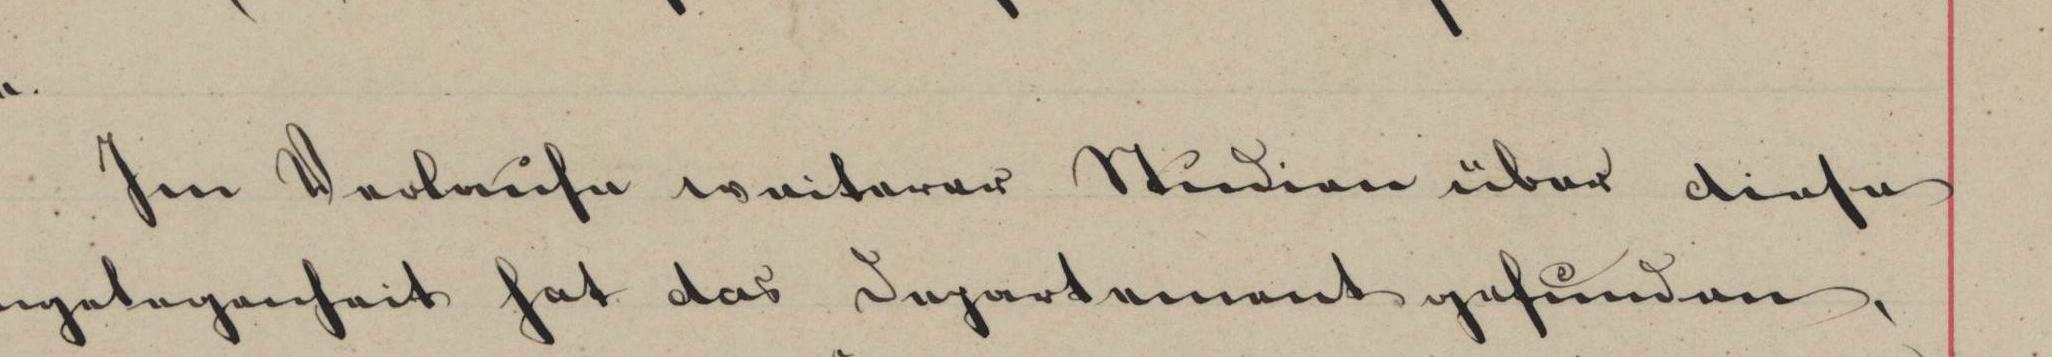 Im Verlaufe weiterer Studien über diese
ngelegenheit hat das Departement gefunden,